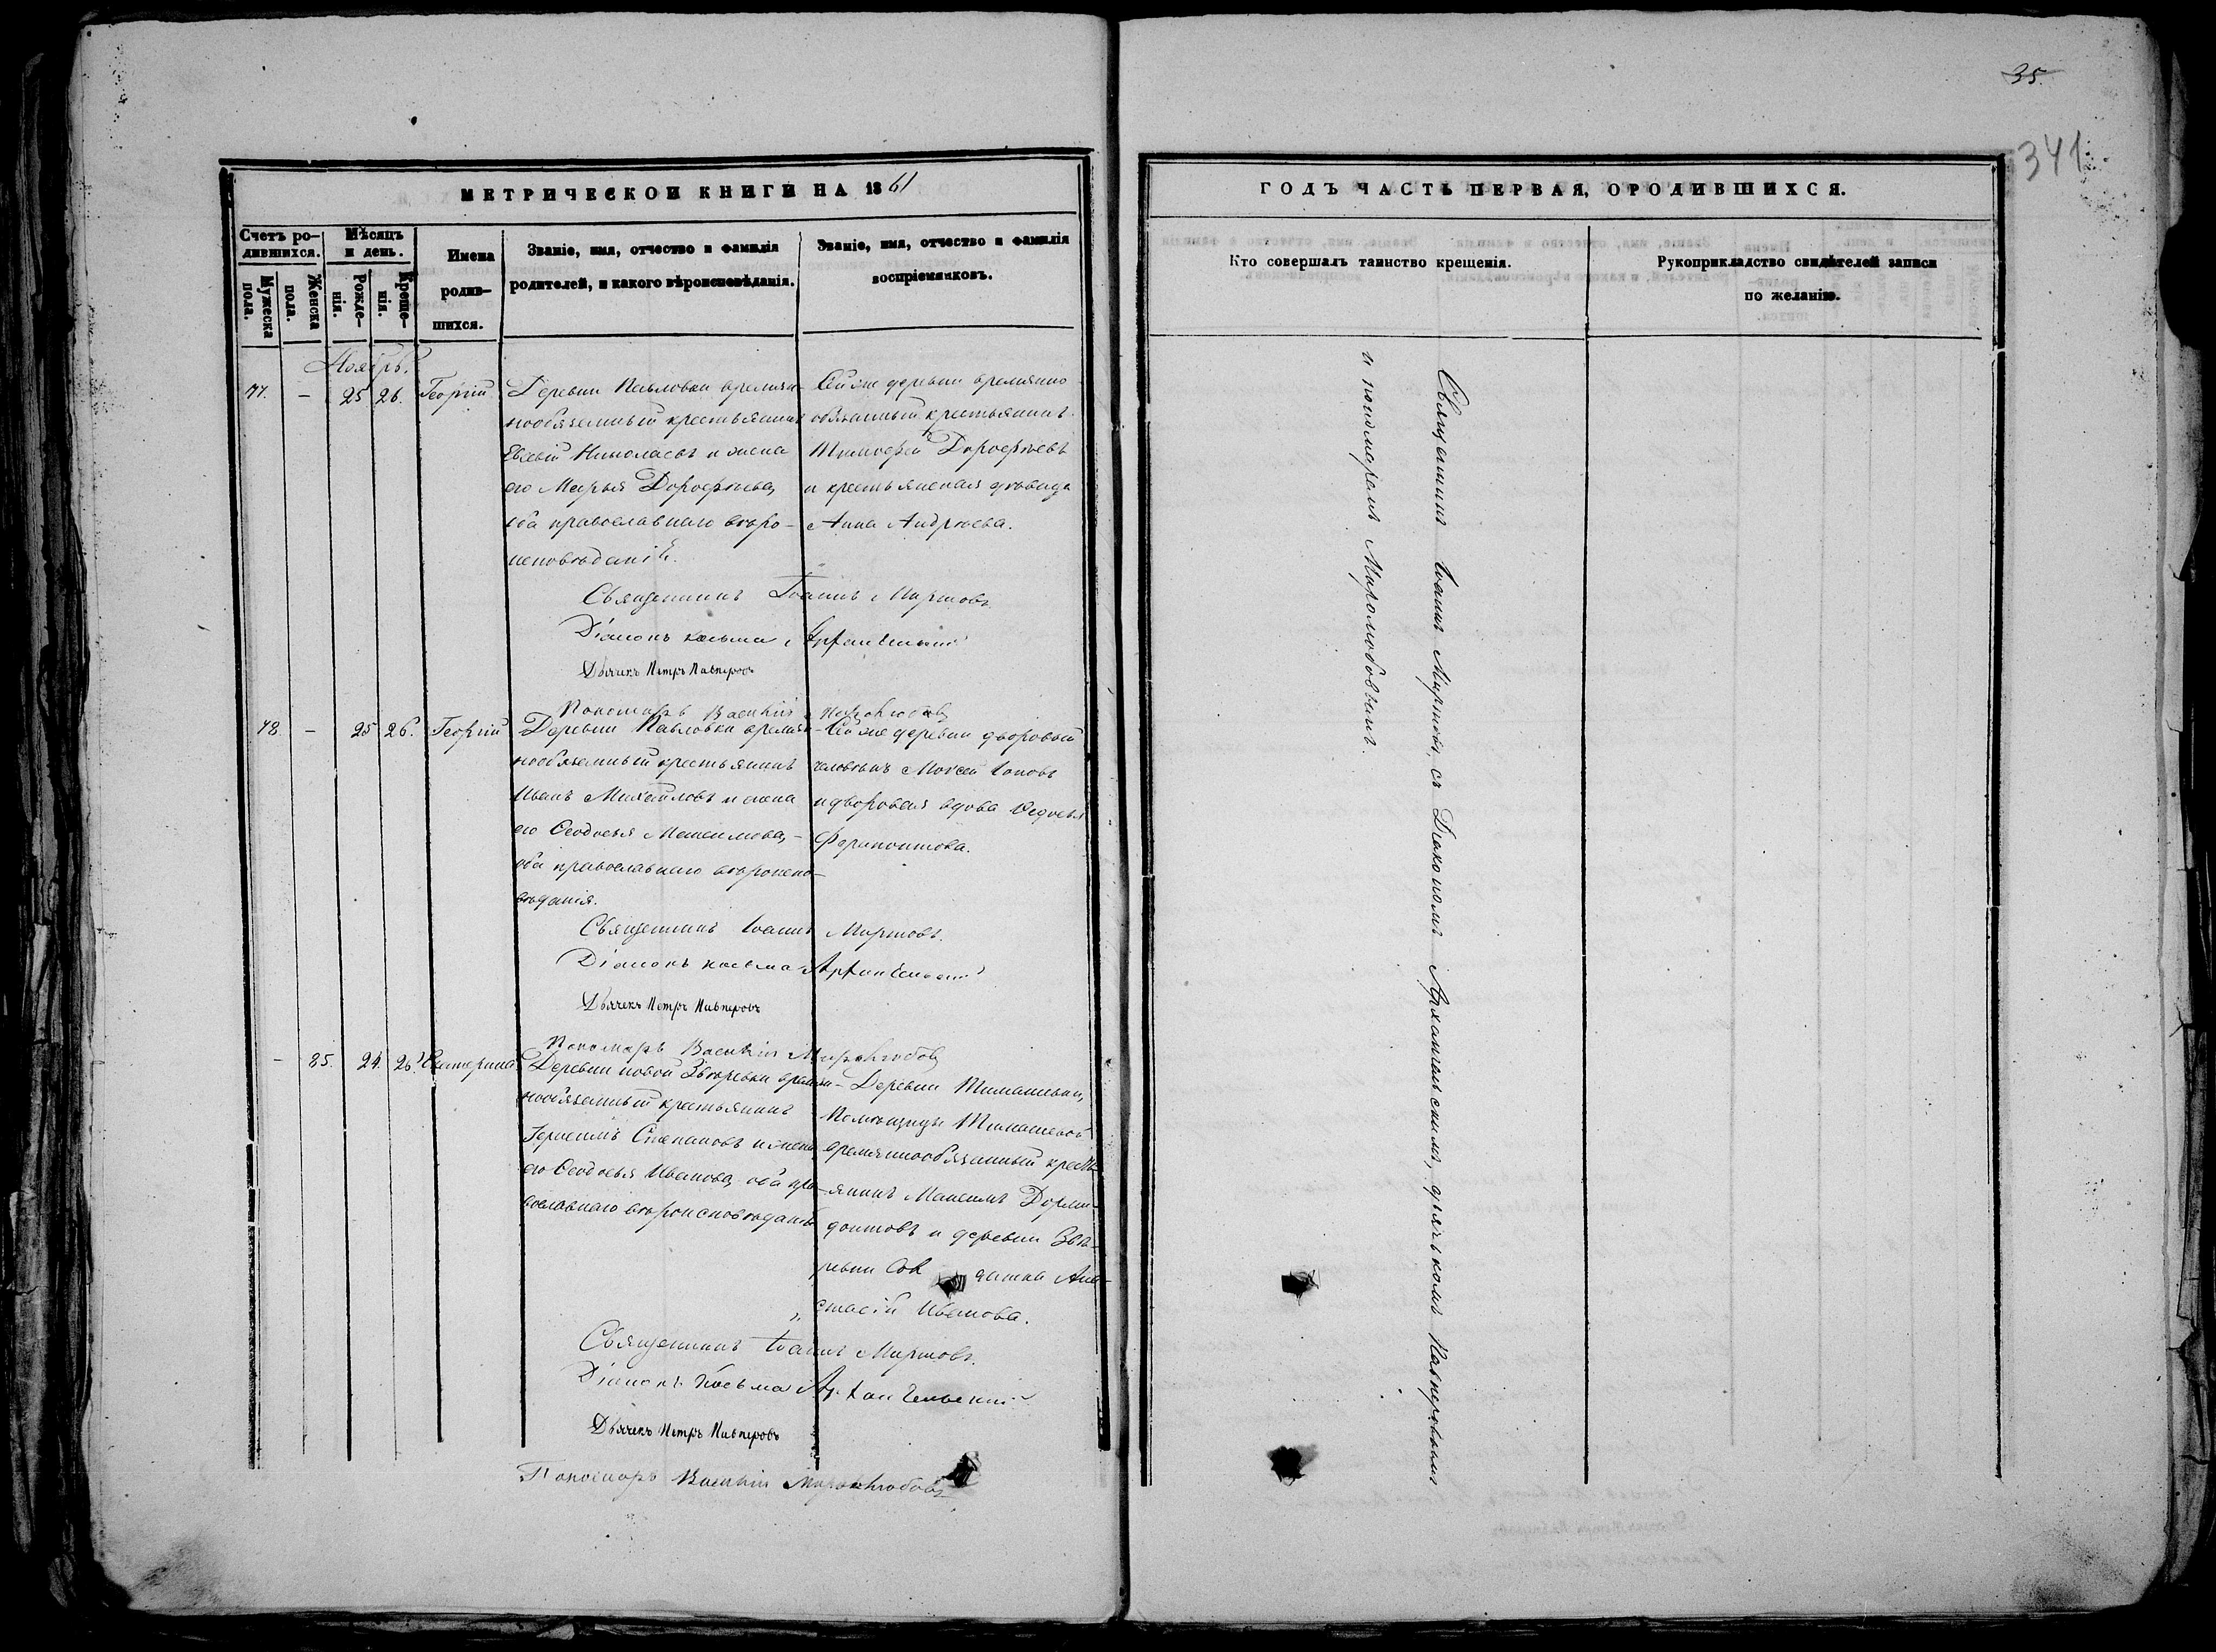 35.
341
МЕТРИЧЕСКОЙ КНИГИ НА 1861
ГОДЪ ЧАСТЬ ПЕРВАЯ, О РОДИВШИХСЯ.
Счетъ ро-
дившихся.
Мужеска
пола.
Женска
пола.
Мѣсяцъ
и день.
Рожде-
нія.
Креще-
нія.
Имена
родив-
шихся.
Званіе, имя, отчество и фамилія
родителей, и какого вѣроисповѣданія.
Званіе, имя, отчество и фамилія
воспріемниковъ.
Кто совершалъ таинство крещенія.
Рукоприкладство свидѣтелей записи
по желанію.
Ноябрь.
77. – 25 26. Георгій
Деревни Павловки времян-
нообязанный крестьянинъ
Николаевъ и жена
его Марья Дорофѣева,
оба православнаго вѣро-
исповѣданія.
Сей же деревни времянно
обязанный крестьянинъ
Тимофей Дорофѣевъ
и крестьянская дѣвица
Анна Андрѣева.
Священникъ Іоаннъ Миртовъ
Діаконъ Косьма Архангельскій
Дьячекъ Петръ Павперовъ
Пономарь Василій Миролюбовъ
78. – 25 26. Георгій
Деревни Павловки времян-
нообязанный крестьянинъ
Иванъ Михайловъ и жена
его Ѳеодосья Максимова,
оба православнаго вѣроиспо-
вѣданія.
Сей же деревни дворовый
человѣкъ Моисей Іоновъ
и дворовая вдова Ѳедосья
Ферапонтова.
Священникъ Іоаннъ Миртовъ.
Діаконъ Косьма Архангельскій
Дьячекъ Петръ Павперовъ
Пономарь Василій Миролюбовъ
– 85. 24. 26. Екатерина
Деревни новой Звѣревки времян-
нообязанный крестьянинъ
Степановъ и жена
его Ѳеодосья Иванова, оба пра-
вославнаго вѣроисповѣданія
Деревни Тимашевки,
Помѣщицы Тимашевой
времяннообязанный кресть-
янинъ Максимъ Дорми-
донтовъ и деревни Звѣ-
ревки Солдатка Ана-
стасія Иванова.
Священникъ Іоаннъ Миртовъ.
Діаконъ Косьма Архангельскій
Дьячекъ Петръ Павперовъ
Пономарь Василій Миролюбовъ
Священникъ Іоаннъ Миртовъ, съ Діакономъ Архангельскимъ, дьячькомъ Павперовымъ
и пономаремъ Миролюбовымъ.